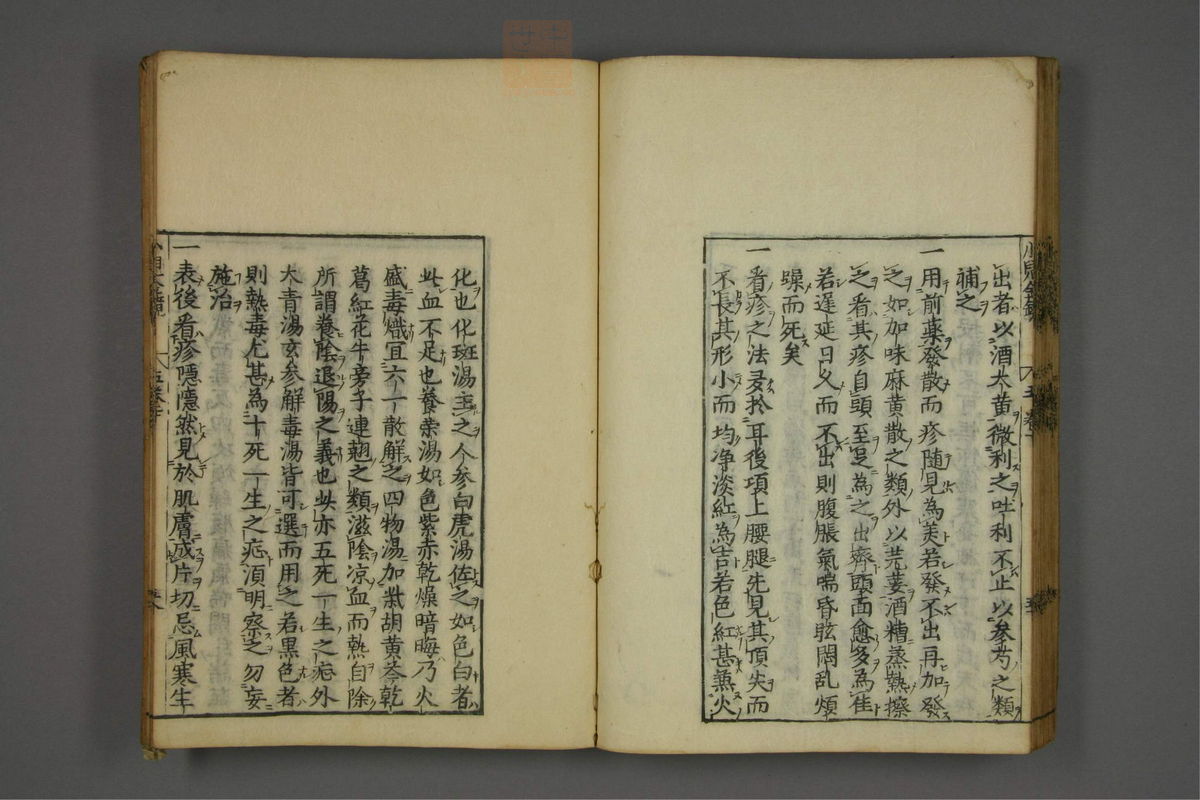 出者以酒大黄微利之吐利不止以参芍之類
補之
一用前藥發散而疹随見為美若發不出再加發
之如加味麻黄散之類外以芫荽酒糟蒸熱擦
之看其疹自頭至足為之出齊頭面愈多為佳
若遅延日久而不出則腹脹氣喘昏眩悶乱煩
躁而死矣
一看疹之法多於耳後項上腰腿先見其頂尖而
不長其形小而均净淡紅為吉若色紅甚兼火
化也化斑湯主之今参白虎湯佐之如色白者
此血不足也養荣湯如色紫赤乾燥暗晦乃火
盛毒熾宜六一散解之四物湯加柴胡黄芩乾
葛紅花牛旁子連翹之類滋陰凉血而熱自除
所謂養陰退陽之義也此亦五死一生之症外
大青湯玄参解毒湯皆可選而用之若黒色者
則熱毒尤甚為十死一生之症須明察之勿妄
施治
一表後看疹隠隠然見於肌膚成片切忌風寒生